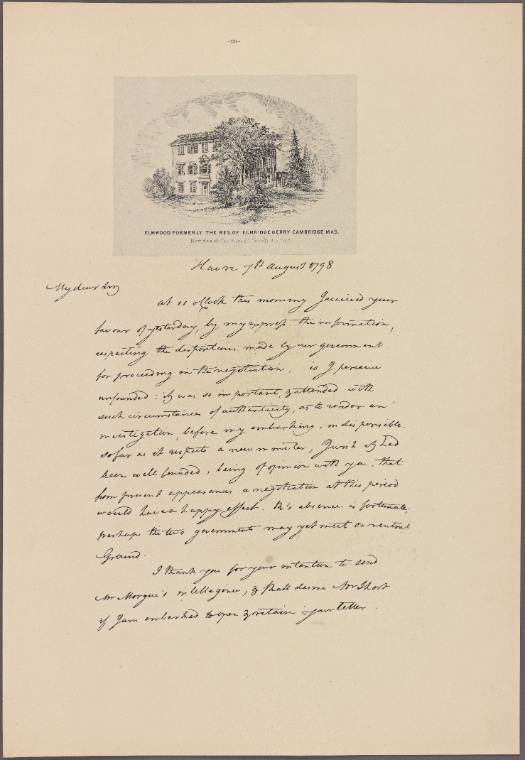 ELMWOOD FORMERLY THE RES. OF ELBRIDGE GERRY CAMBRIDGE MAS.
Havre 7th August 1798
My dear Sir
at 10 oClock this morning I received your
favour of yesterday, by my express. the information,
respecting the dispositions made by our government
for proceeding on the negotiation, is I perceive
unfounded: it was so important, & attended with
such circumstances of authenticity, as to render an
investigation, before my embarking, indispensible.
so far as it respects a new minister, I wish it had
been well founded, being of opinion with you, that
from present appearances a negotiation at this period
would have a happy effect. absence is fortunate.
perhaps the two governments may yet meet on neutral
Ground.
I thank you for your intention to send
Mr intelligence, & shall desire Mr Short
if I am embarked to open & retain your letter.